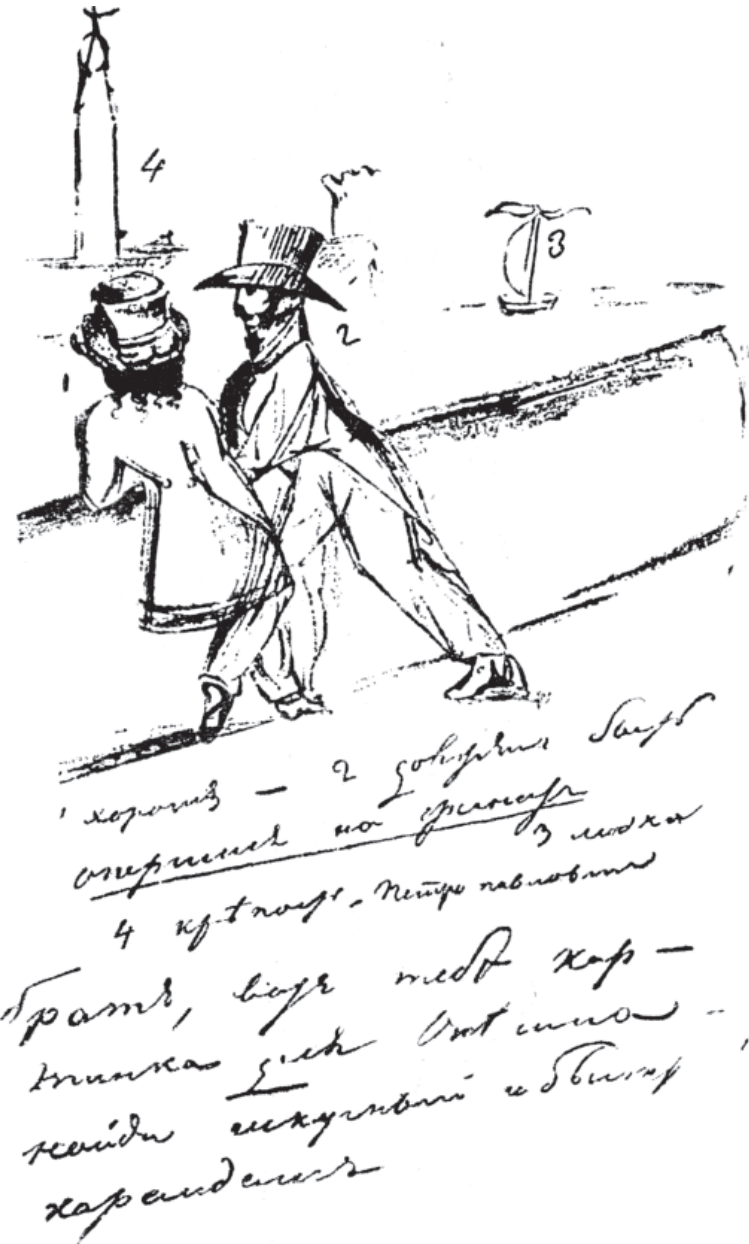 4
3
2
1
1 хорошъ — 2 долженъ быть
опершися на гранитъ
3 лодка
4 крѣпость. Петропавловская
Братъ, вотъ тебѣ кар—
тинка для Онѣгина —
найди искусный и быстрый
карандашъ